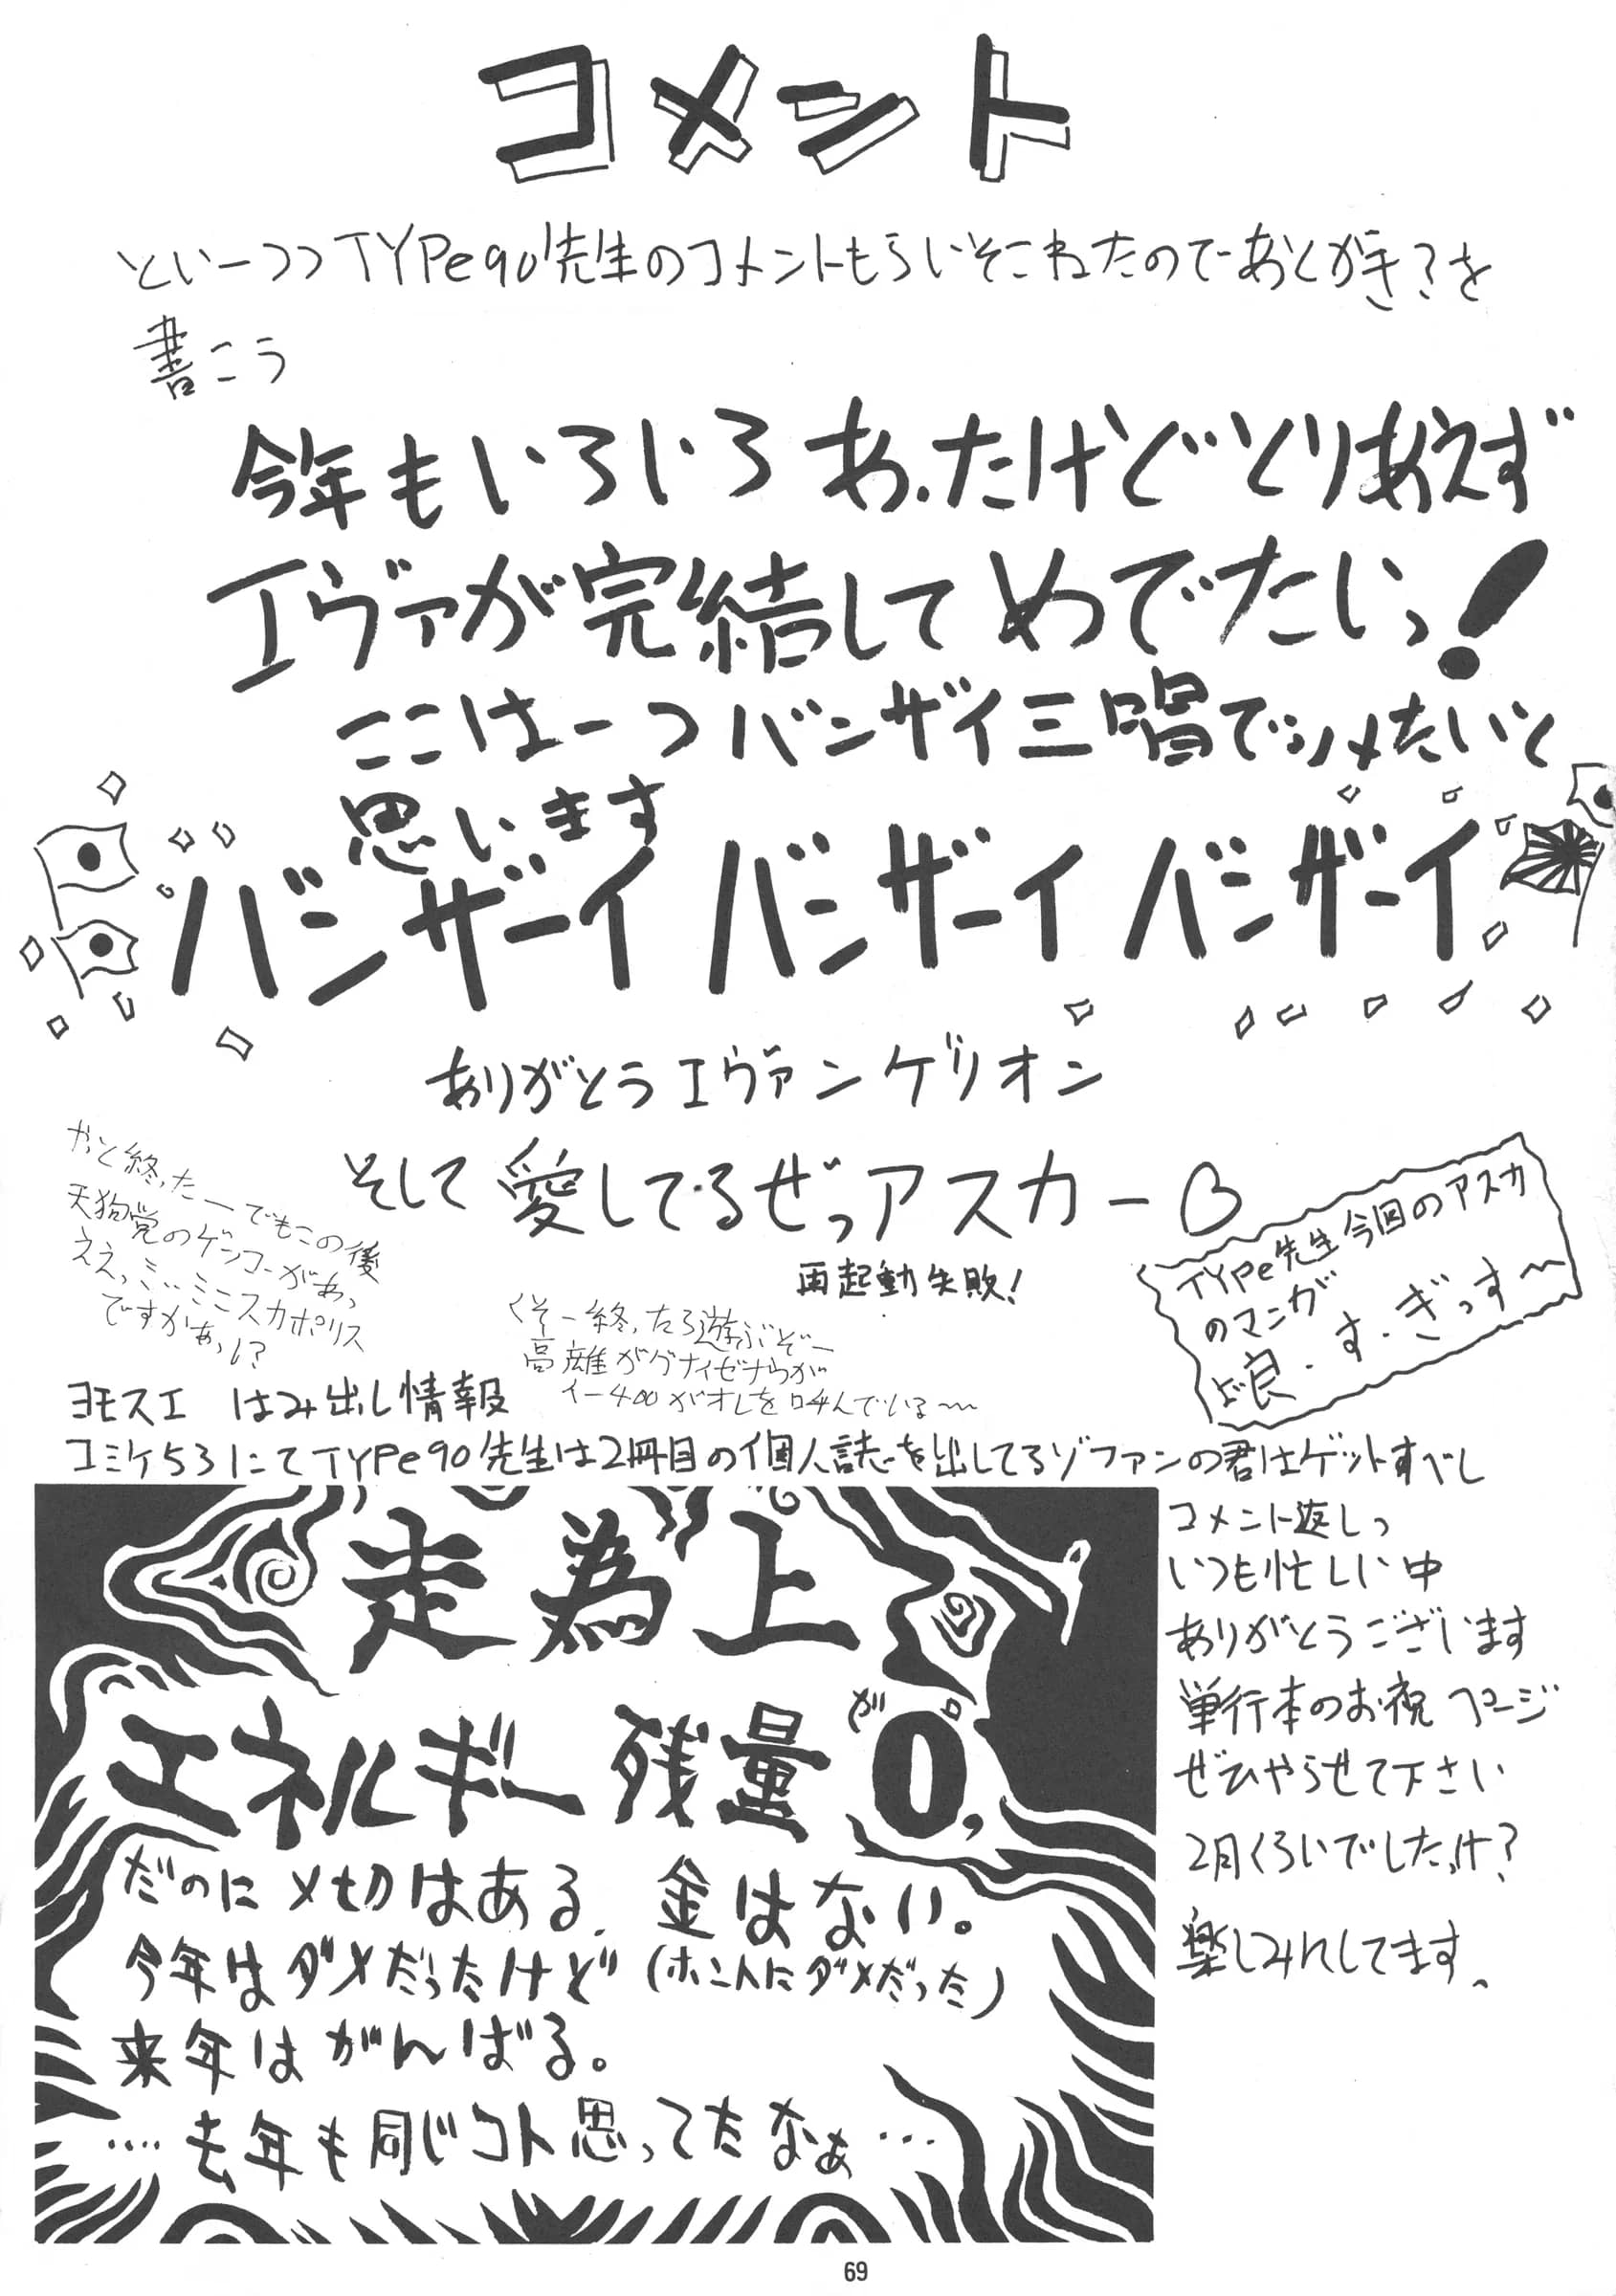 コメント
といーつつTYPe90先生のコメントもらいそこねたのであとがき?を
書こう
今年もいろいろあったけどとりあえず
エヴァが完結してめでたいっ!
ここは一つバンザイ三唱でシメたいと
思います
バンザーイ バンザーイ バンザーイ
ありがとうエヴァンゲリオン
そして愛してるぜっアスカー
再起動失敗!
やっと終ったーでもこの後
天狗党のゲンコーがあっ
ええっミ…ミニスカポリス
ですかぁっ!?
TYPe先生今回のアスカ
のマンガ
良・す・ぎっす〜
くそー終ったら遊ぶぞー
イー400がオレを呼んでいる〜
ヨモスエ はみ出し情報
コミケ53にてTYPe90先生は2冊目の個人誌を出してるゾファンの君はゲットすべし
走為上
エネルギー残量が0,
だのに〆切はある。金はない。
今年はダメだったけど(ホントにダメだった)
来年はがんばる。
…去年も同じコト思ってたなぁ…
コメント返しっ
いつも忙しい中
ありがとうございます
単行本のお祝ページ
ぜひやらせて下さい
2月くらいでしたっけ?
楽しみにしてます、
69